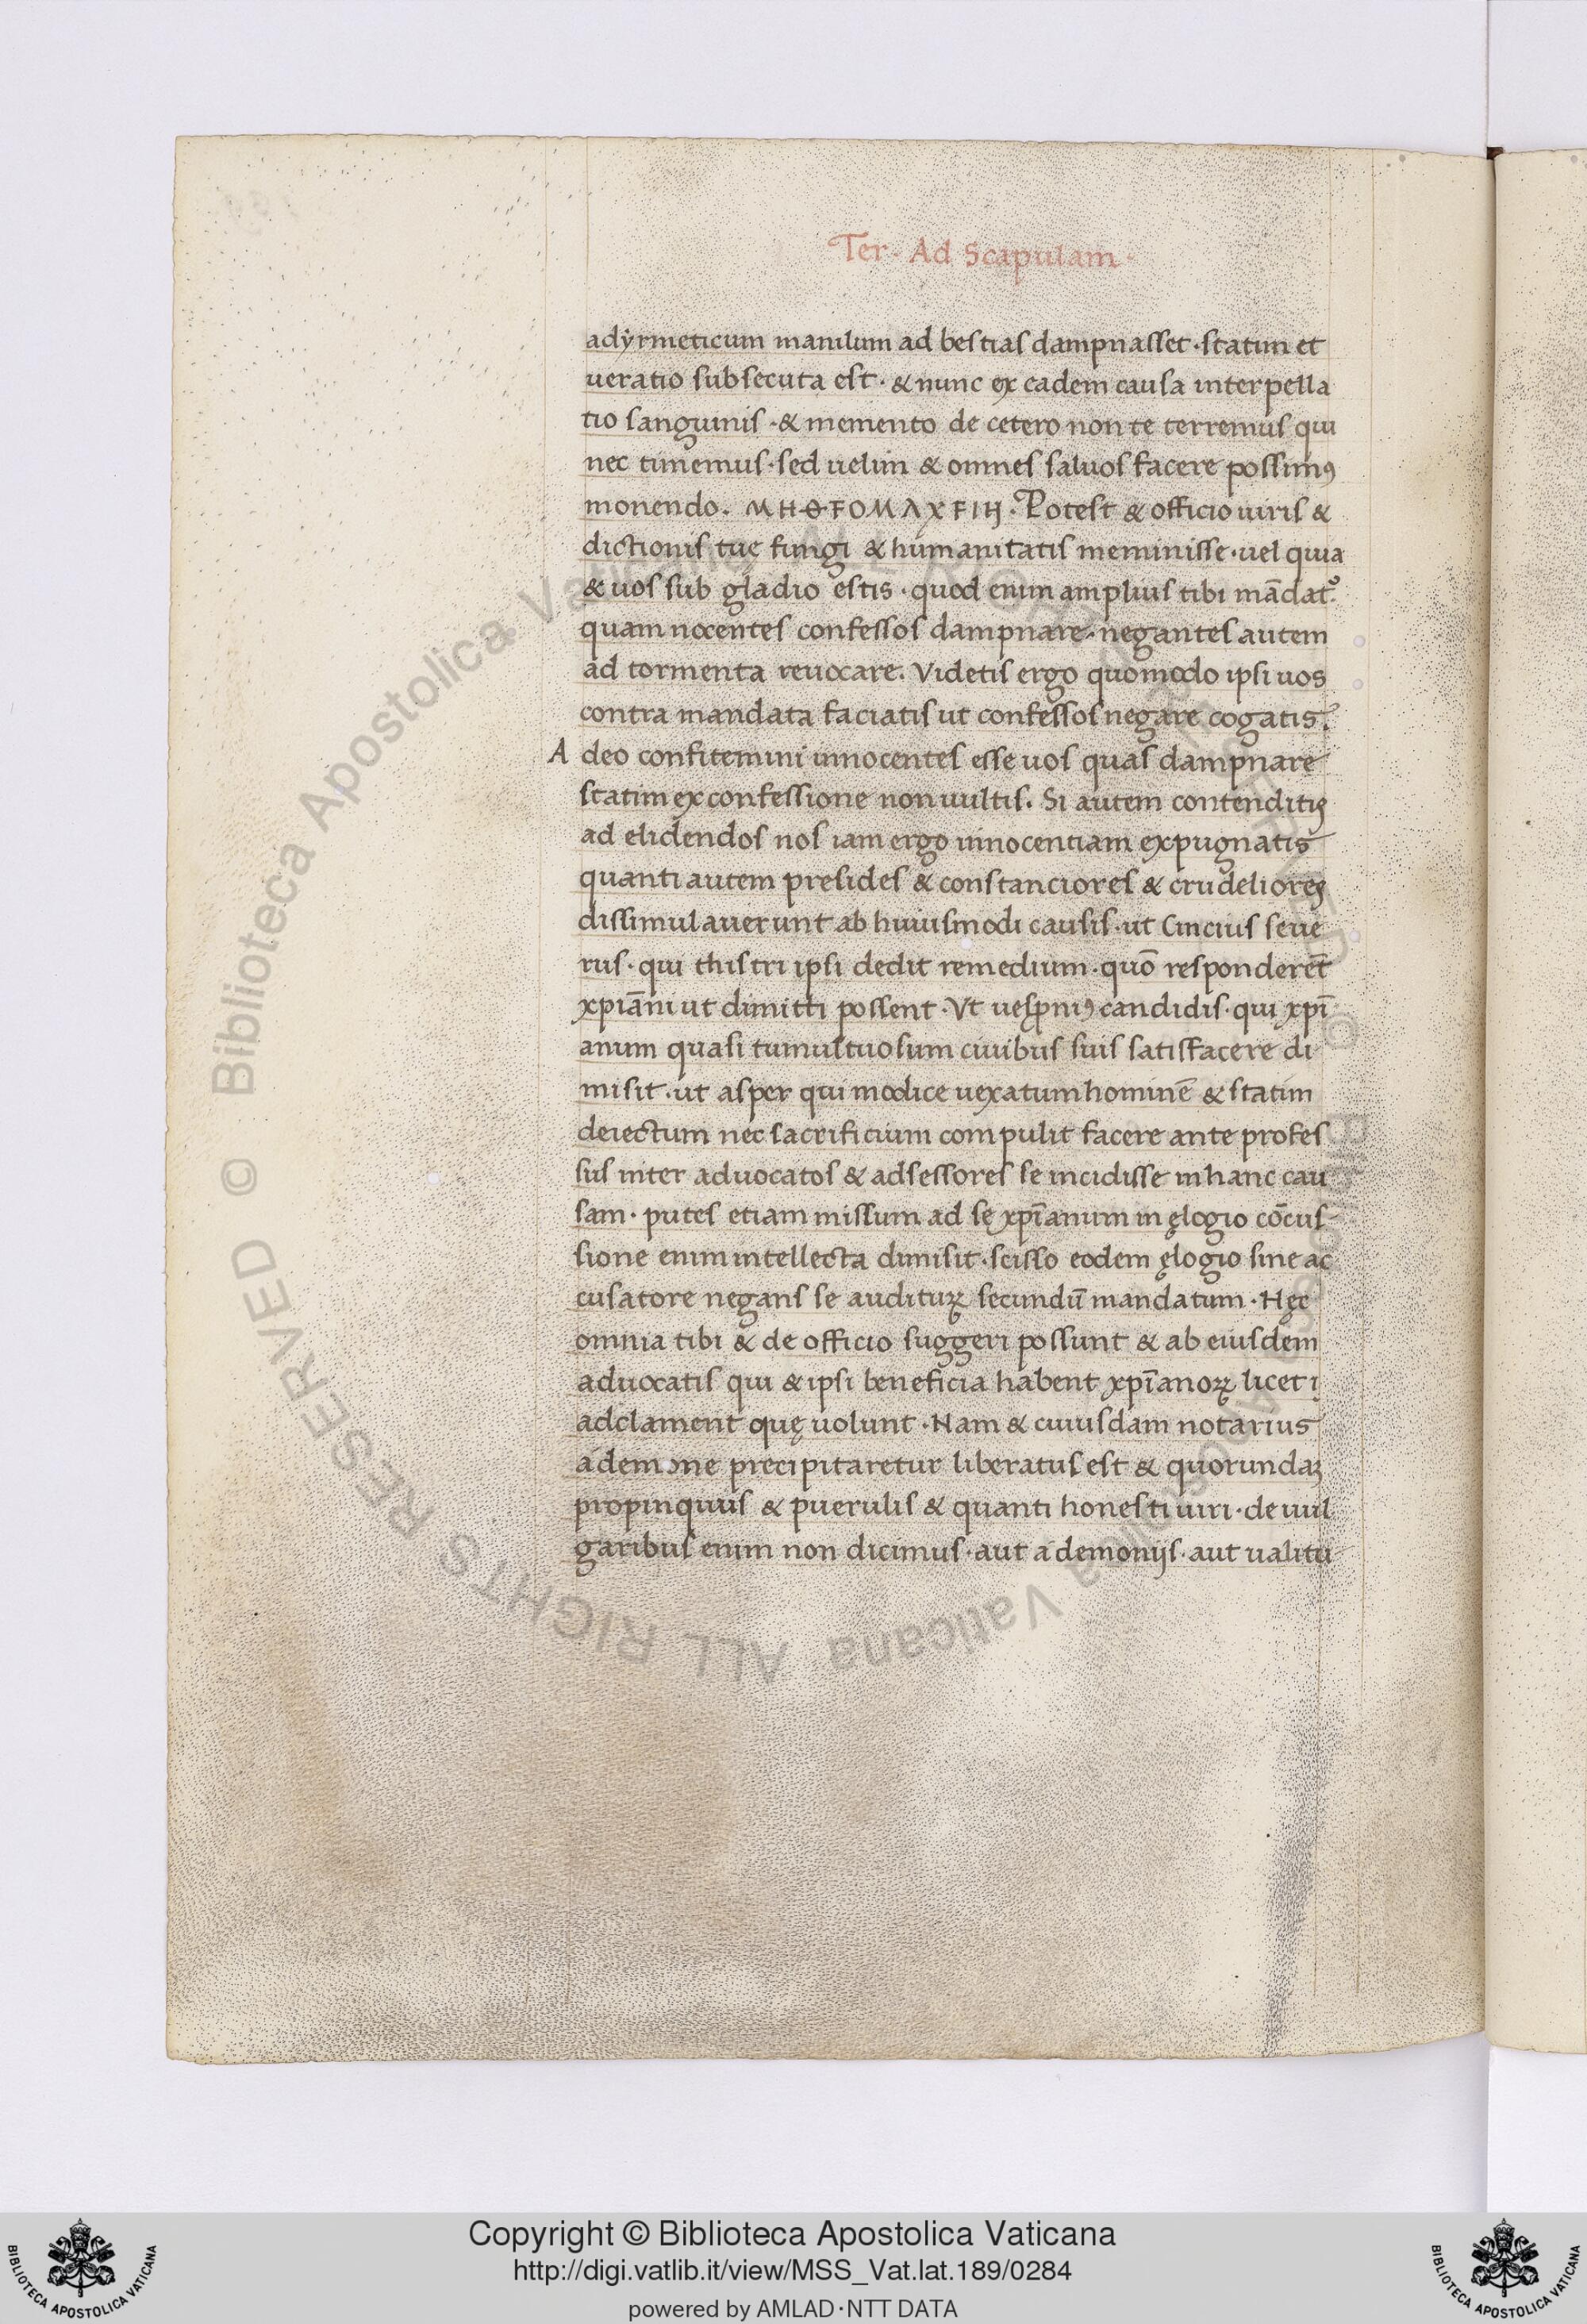 Ter· Ad Scapulam·
adyrmeticum manilum ad bestias dampnasset·statim et
ueratio subsecuta est· & nunc ex eadem causa interpella
tio sanguinis·& memento de cetero non te terremus qui
nec timemus·sed uelim & omnes saluos facere possimꝰ
monendo. ΜΗΘΕΟΜΑΧΕΙΗ·Potest & officio uiris &
dictionis tuę fungi & humanitatis meminisse·uel quia
& uos sub gladio estis·quod enim amplius tibi mādat᷑
quam nocentes confessos dampnare·negantes autem
ad tormenta reuocare. Videtis ergo quomodo ipsi uos
contra mandata faciatis ut confessos negare cogatis.
A deo confitemini innocentes esse uos quas dampnare
statim ex confessione non uultis. Si autem contenditis
ad elidendos nos iam ergo innocentiam expugnatis
quanti autem presides & constanciores & crudeliores
dissimulauerunt ab huiusmodi causis·ut Cincius seue
rus·qui thistri ipsi dedit remedium·quō responderēt
xpiāni ut dimitti possent·Vt uesꝓniꝰ candidis·qui xpī
anum quasi tumultuosum ciuibus suis satisfacere di
misit·ut asper qui modice uexatum hominē & statim
deiectum nec sacrificium compulit facere ante profes
sus inter aduocatos & adsessores se incidisse in hanc cau
sam· putes etiam missum ad se xpīanum in ęlogio cōcus
sione enim intellecta dimisit·scisso eodem ęlogio sine ac
cusatore negans se audituꝝ secundū mandatum·Hęc
omnia tibi & de officio suggeri possunt & ab eiusdem
aduocatis qui & ipsi beneficia habent xpīanoꝝ licet i
adclament quę uolunt·Nam & cuiusdam notarius
a demone precipitaretur liberatus est & quorundaꝫ
propinquus & puerulis & quanti honesti uiri·de uul
garibus enim non dicimus·aut a demonijs·aut ualitu
Copyright © Biblioteca Apostolica Vaticana
http://digi.vatlib.it/view/MSS_Vat.lat.189/0284
powered by AMLAD·NTT DATA
BIBLIOTECA APOSTOLICA VATICANA
BIBLIOTECA APOSTOLICA VATICANA
© Biblioteca Apostolica Vaticana ALL RIGHTS RESERVED